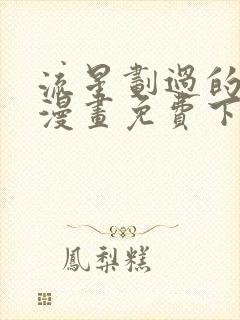 流星劃過的
漫畫免費下
鳳梨糕